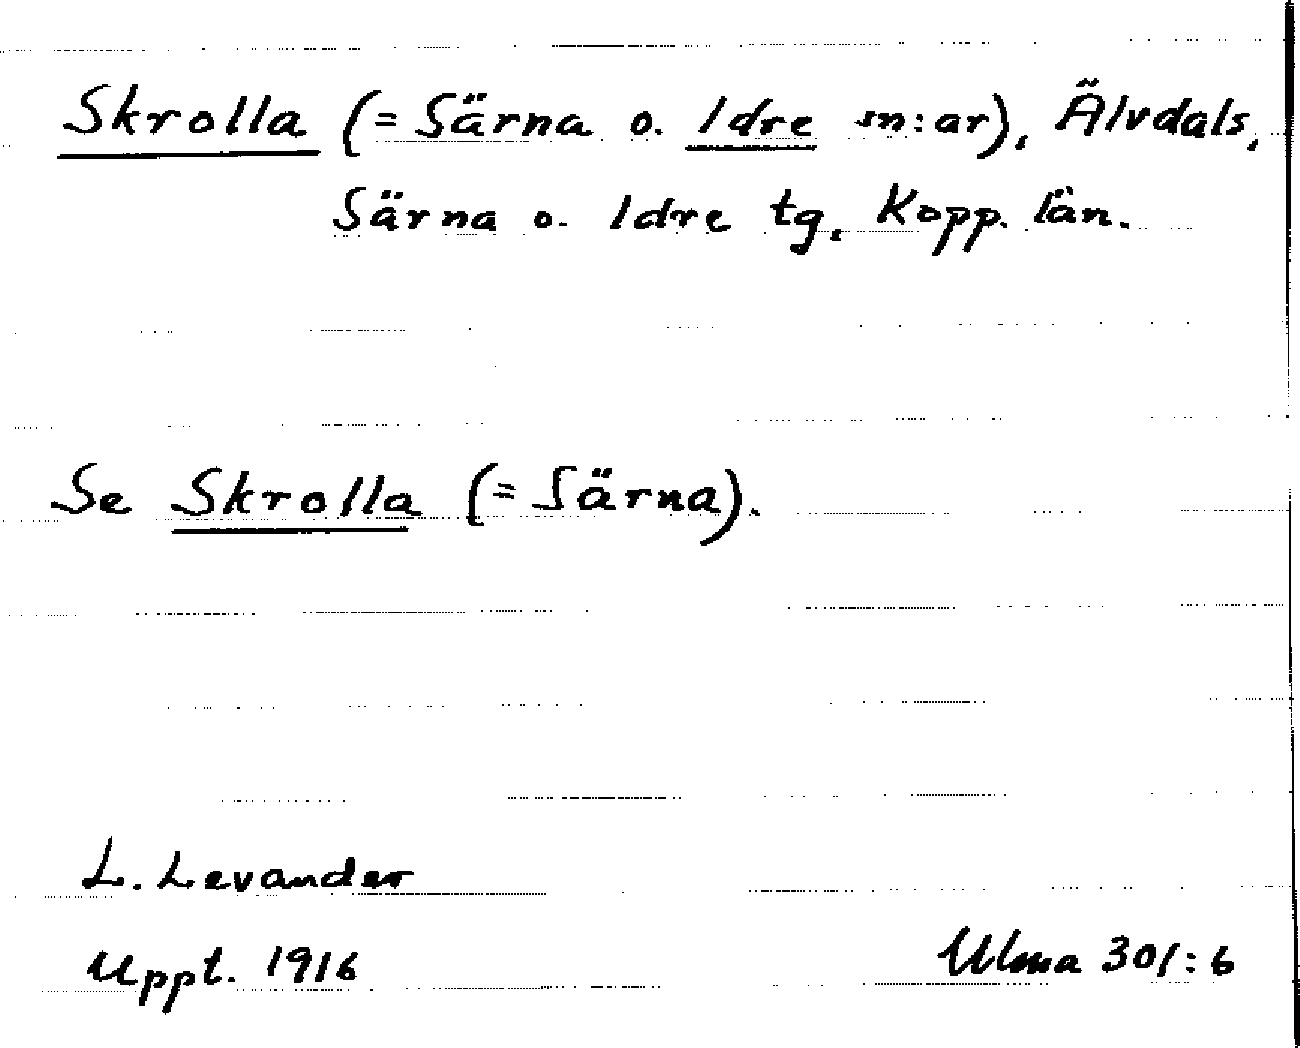 Skrolla (= Särna o. Idre sn:ar), Älvdals,
Särna o. Idre tg, Kopp. län.
Se Skrolla (= Särna).
L. Levander
Uppt. 1916
Ulma 301:6